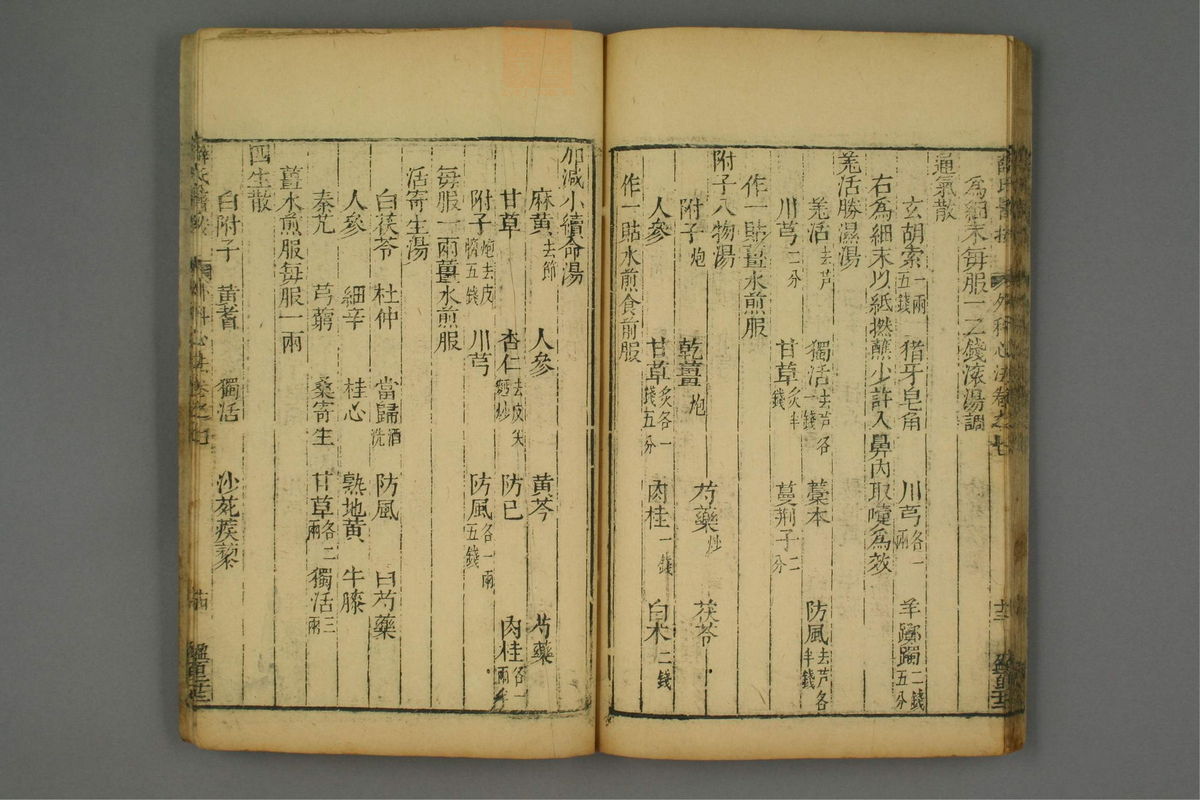 薛氏醫按 外科心法卷之七
為細末每服一二錢滾湯調
通氣散
玄胡索一兩五錢 猪牙皂角 川芎各一兩 羊躑躅二錢五分
右為細末以紙撚蘸少許入鼻內取嚏為效
羗活勝濕湯
羗活去芦 獨活去芦各一錢 藁本 防風去芦各半錢
川芎二分 甘草炙半錢 蔓荊子二分
作一貼薑水煎服
附子八物湯
附子炮 乾薑炮 芍藥炒 茯苓
人參 甘草炙各一錢五分 肉桂一錢 白朮二錢
作一貼水煎食前服
加減小續命湯
麻黄去節 人參 黄芩 芍藥
甘草 杏仁去皮尖麪炒 防已 肉桂各一兩半
附子炮去皮臍五錢 川芎 防風各一兩五錢
每服一兩薑水煎服
活寄生湯
白茯苓 杜仲 當歸酒洗 防風 白芍藥
人參 細辛 桂心 熟地黄 牛膝
秦艽 芎藭 桑寄生 甘草各二兩 獨活三兩
薑水煎服每服一兩
四生散
白附子 黄耆 獨活 沙苑蒺藜
薛氏醫按 外科心法卷之七